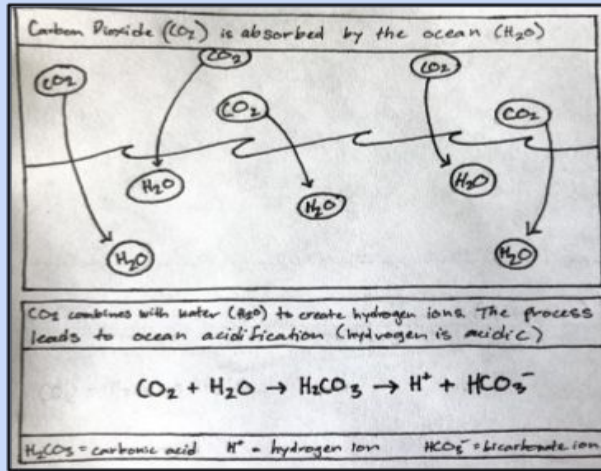 Carbon Dioxide (CO₂) is absorbed by the ocean (H₂O)
CO₂ CO₂ CO₂ CO₂ CO₂
H₂O H₂O H₂O
H₂O H₂O
CO₂ combines with water (H₂O) to create hydrogen ions. The process
leads to ocean acidification (hydrogen is acidic)
CO₂ + H₂O → H₂CO₃ → H⁺ + HCO₃⁻
H₂CO₃ = carbonic acid H⁺ = hydrogen ion HCO₃⁻ = bicarbonate ion